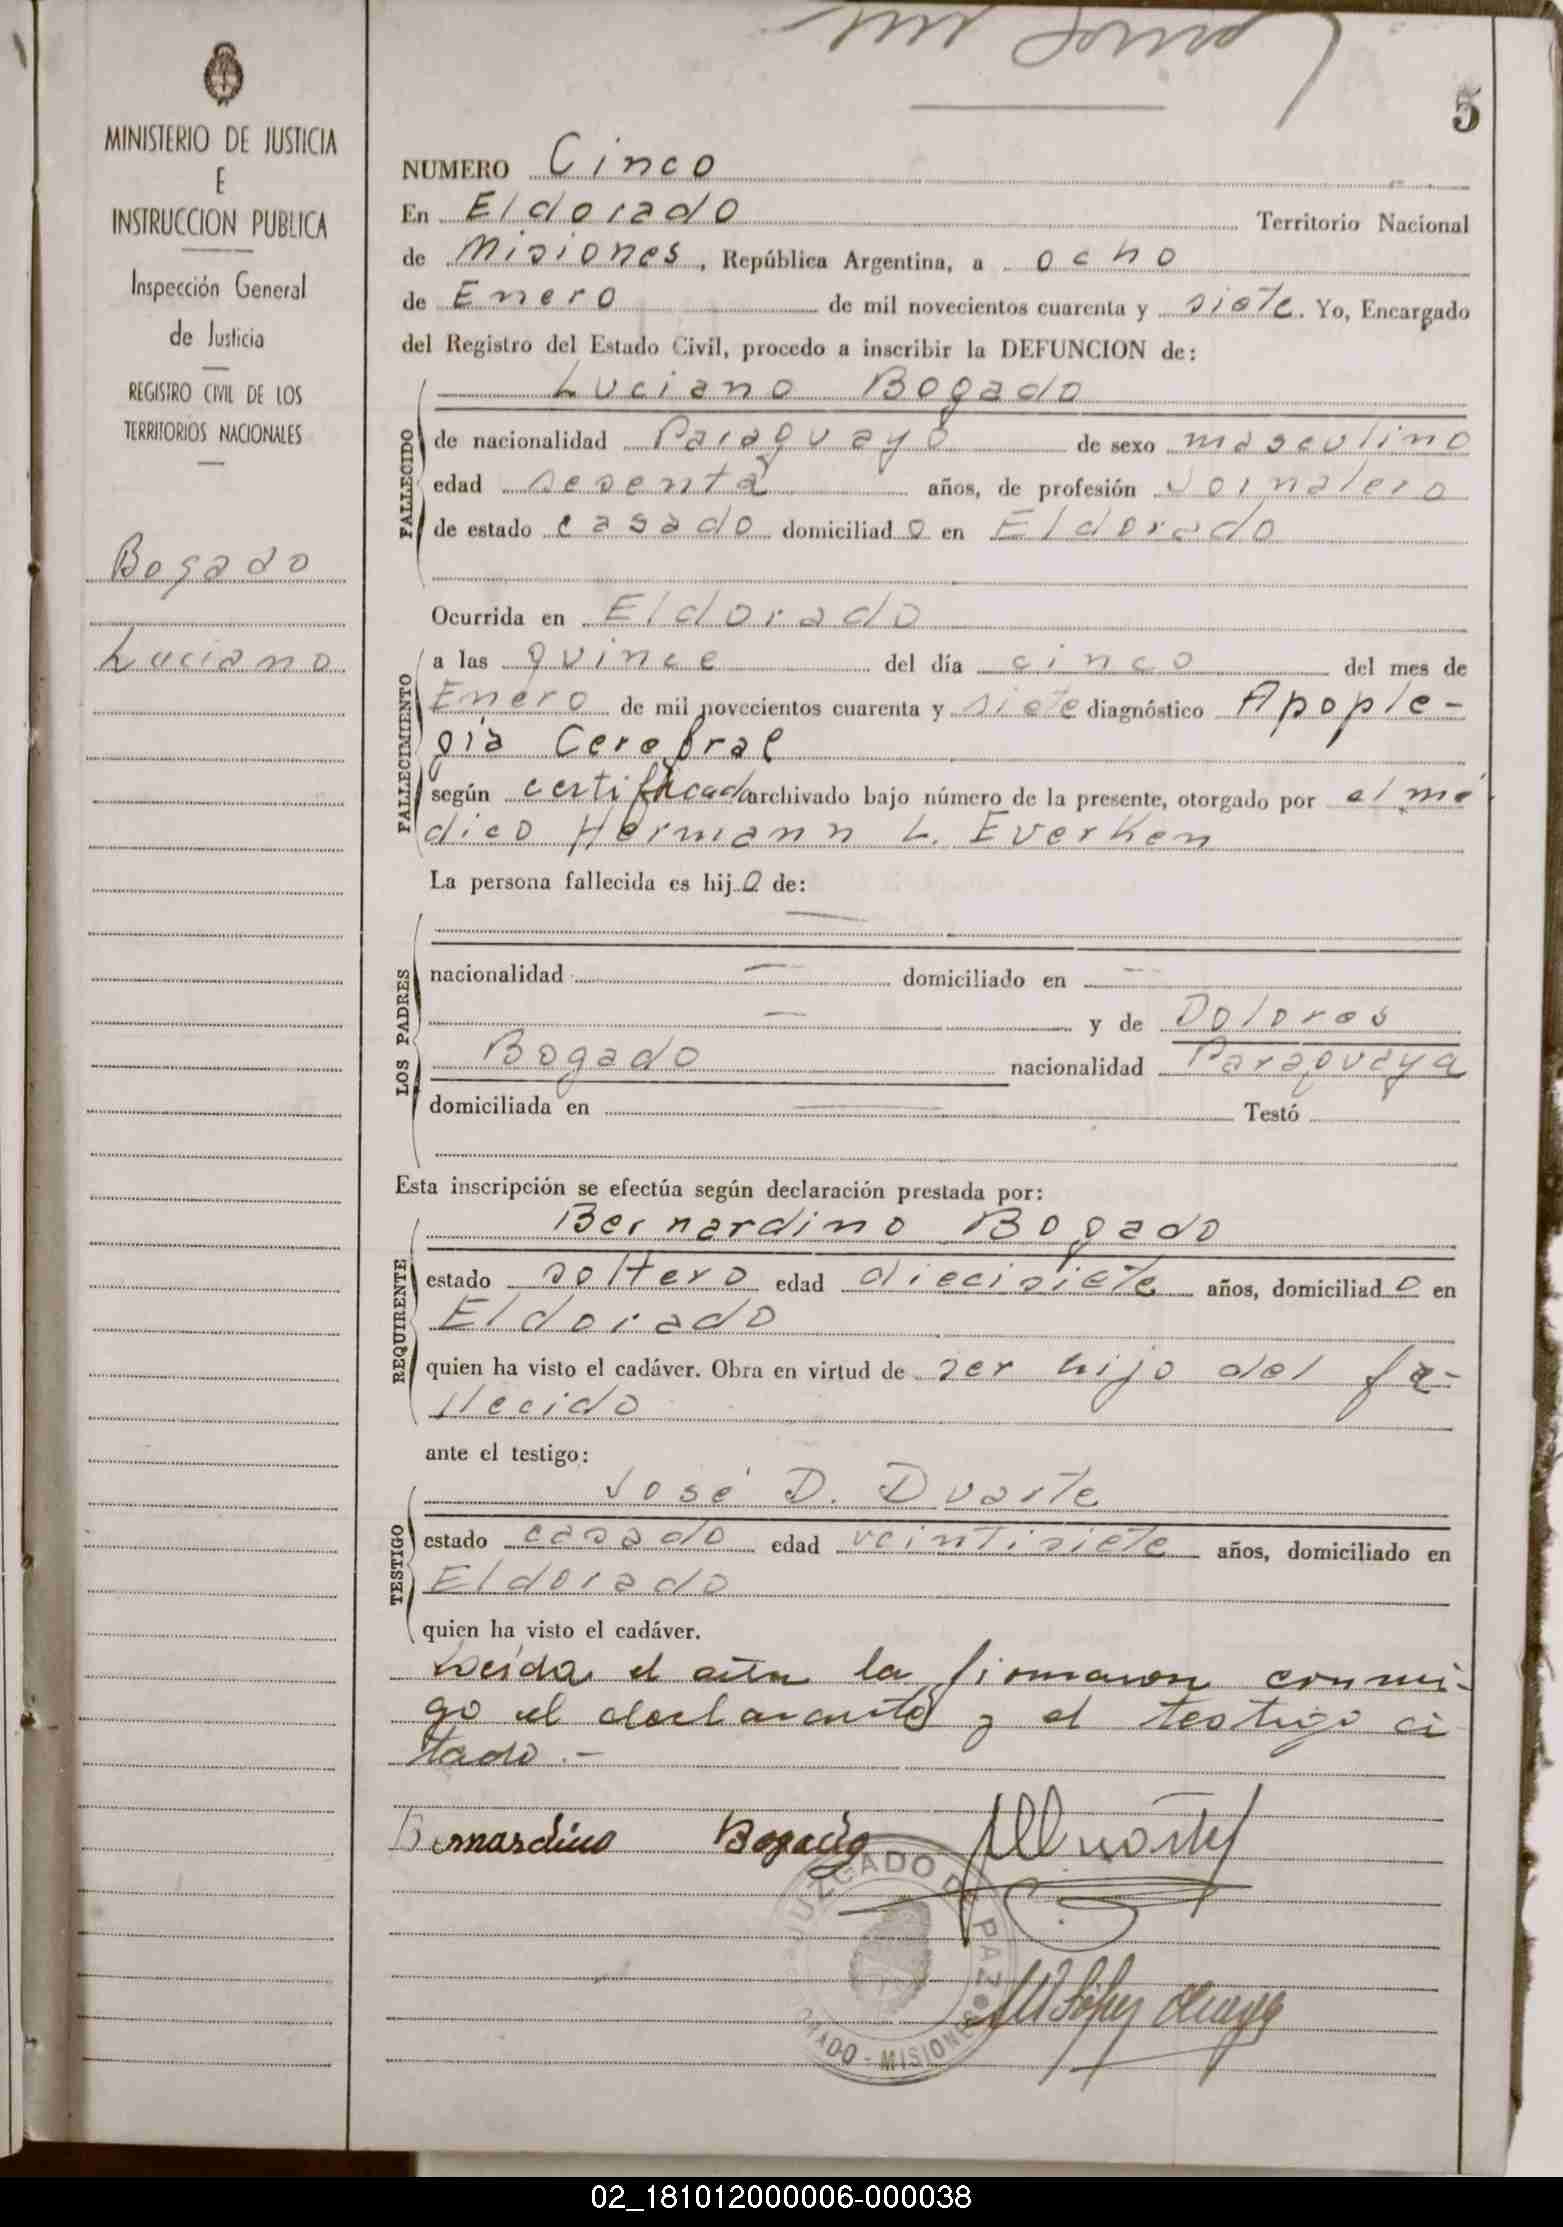 5
MINISTERIO DE JUSTICIA
E
INSTRUCCION PUBLICA
Inspección General
de Justicia
REGISTRO CIVIL DE LOS
TERRITORIOS NACIONALES
Bogado
Luciano
NUMERO Cinco
En Eldorado Territorio Nacional
de Misiones, República Argentina, a ocho
de Enero de mil novecientos cuarenta y siete. Yo, Encargado
del Registro del Estado Civil, procedo a inscribir la DEFUNCION de:
FALLECIDO
Luciano Bogado
de nacionalidad Paraguayo de sexo masculino
edad sesenta años, de profesión Jornalero
de estado casado domiciliado en Eldorado
Ocurrida en Eldorado
FALLECIMIENTO
a las quince del día cinco del mes de
Enero de mil novecientos cuarenta y siete diagnóstico Apople-
gia Cerebral
según certificado archivado bajo número de la presente, otorgado por el mé
dico Hermann L. Everken
La persona fallecida es hijo de:
LOS PADRES
—
nacionalidad — domiciliado en —
— y de Dolores
Bogado nacionalidad Paraguaya
domiciliada en — Testó
Esta inscripción se efectúa según declaración prestada por:
REQUIRENTE
Bernardino Bogado
estado soltero edad diecisiete años, domiciliado en
Eldorado
quien ha visto el cadáver. Obra en virtud de ser hijo del fa-
llecido
ante el testigo:
TESTIGO
José D. Duarte
estado casado edad veintisiete años, domiciliado en
Eldorado
quien ha visto el cadáver.
Leída el acta la firmaron conmi-
go el declarante y el testigo ci
tado.-
Bernardino Bogado
JUZGADO DE PAZ
MISIONES
02_181012000006-000038